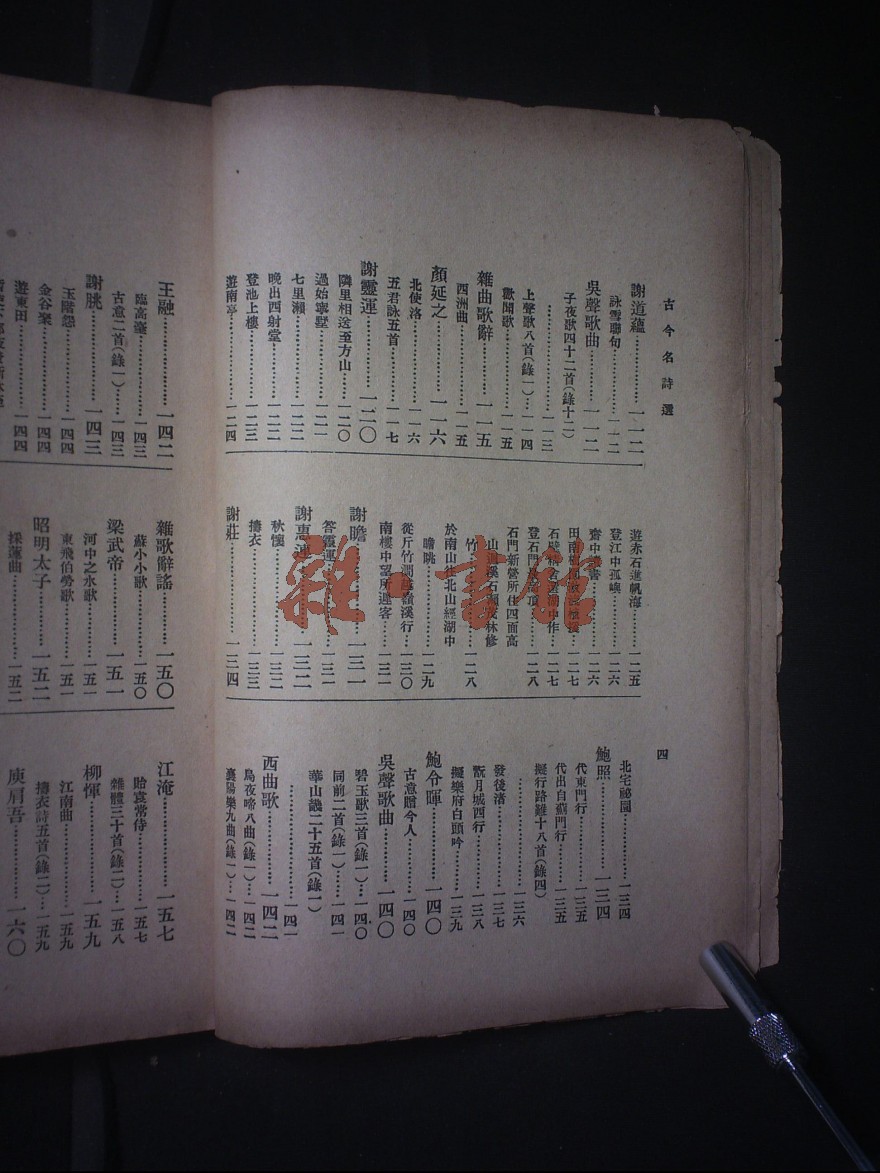 古今名詩選
四
謝道蘊………一一二
詠雪聯句………一一二
吳聲歌曲………一一二
子夜歌四十二首(錄十二)
………一一三
上聲歌八首(錄一)…一一四
歡聞歌………一一五
雜曲歌辭………一一五
西洲曲………一一五
顏延之………一一六
北使洛………一一六
五君詠五首………一一七
謝靈運………一二〇
隣里相送至方山………一二〇
過始寧墅………一二一
七里瀨………一二二
晚出西射堂………一二二
登池上樓………一二三
遊南亭………一二四
遊赤石進帆海………一二五
登江中孤嶼………一二六
齋中讀書………一二六
田南………一二七
石壁精舍還湖中作………一二七
登石門最高頂………一二八
石門新營所住四面高
山迴溪石瀨茂林修
竹………一二八
於南山往北山經湖中
瞻眺………一二九
從斤竹澗越嶺溪行………一三〇
南樓中望所遲客………一三一
謝瞻………一三一
答靈運………一三一
謝惠連………一三二
秋懷………一三二
擣衣………一三三
謝莊………一三四
北宅祕園………一三四
鮑照………一三四
代東門行………一三五
代出自薊門行………一三五
擬行路難十八首(錄四)
………一三六
發後渚………一三七
翫月城西行………一三八
擬樂府白頭吟………一三九
鮑令暉………一四〇
古意贈今人………一四〇
吳聲歌曲………一四〇
碧玉歌三首(錄一)…一四〇
同前二首(錄一)…一四一
華山畿二十五首(錄一)
………一四一
西曲歌………一四二
烏夜啼八曲(錄一)…一四二
襄陽樂九曲(錄一)…一四二
王融………一四二
臨高臺………一四三
古意二首(錄一)…一四三
謝朓………一四三
玉階怨………一四四
金谷聚………一四四
遊東田………一四四
雜歌辭謠………一五〇
蘇小小歌………一五〇
梁武帝………一五一
河中之水歌………一五一
東飛伯勞歌………一五一
昭明太子………一五二
採蓮曲………一五二
江淹………一五七
貽袁常侍………一五七
雜體三十首(錄二)…一五八
柳惲………一五九
江南曲………一五九
擣衣詩五首(錄二)…一五九
庾肩吾………一六〇
雜·書館